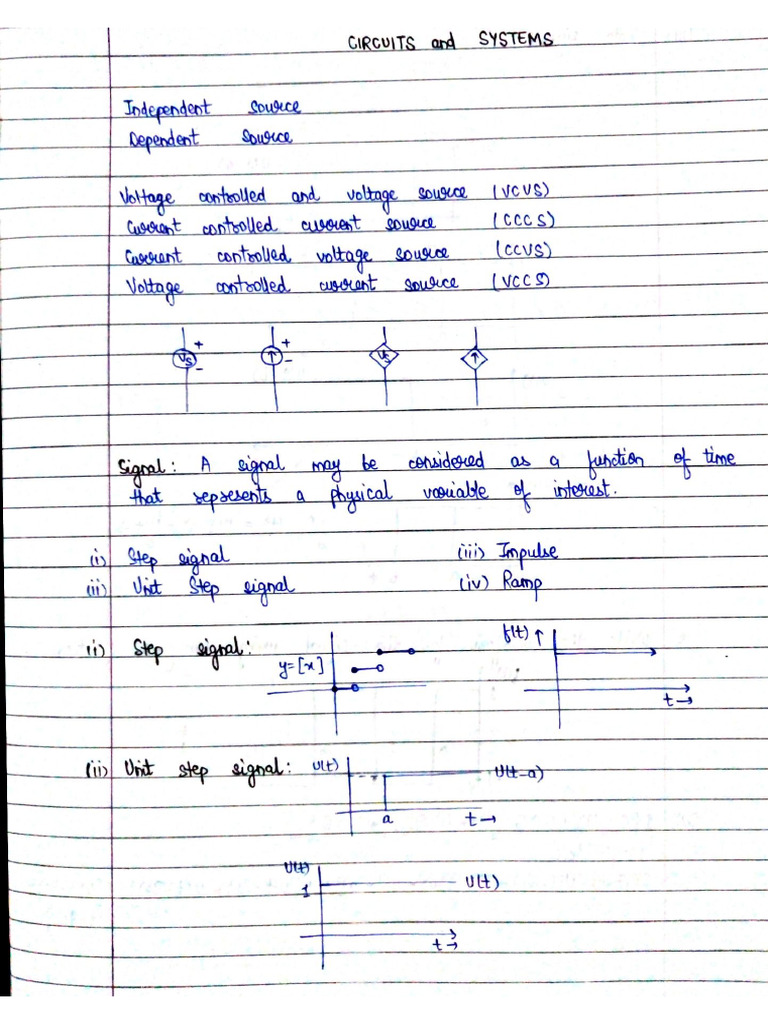 CIRCUITS and SYSTEMS
Independent source
Dependent source
Voltage controlled and voltage source (VCVS)
Current controlled current source (CCCS)
Current controlled voltage source (CCVS)
Voltage controlled current source (VCCS)
Vs + - ↑ + - Vs ↑
Signal: A signal may be considered as a function of time
that represents a physical variable of interest.
(i) Step signal (iii) Impulse
(ii) Unit step signal (iv) Ramp
(i) Step signal: y=[x] f(t) ↑
t→
(ii) Unit step signal: U(t) U(t-a)
a t→
U(t)
1 U(t)
t→